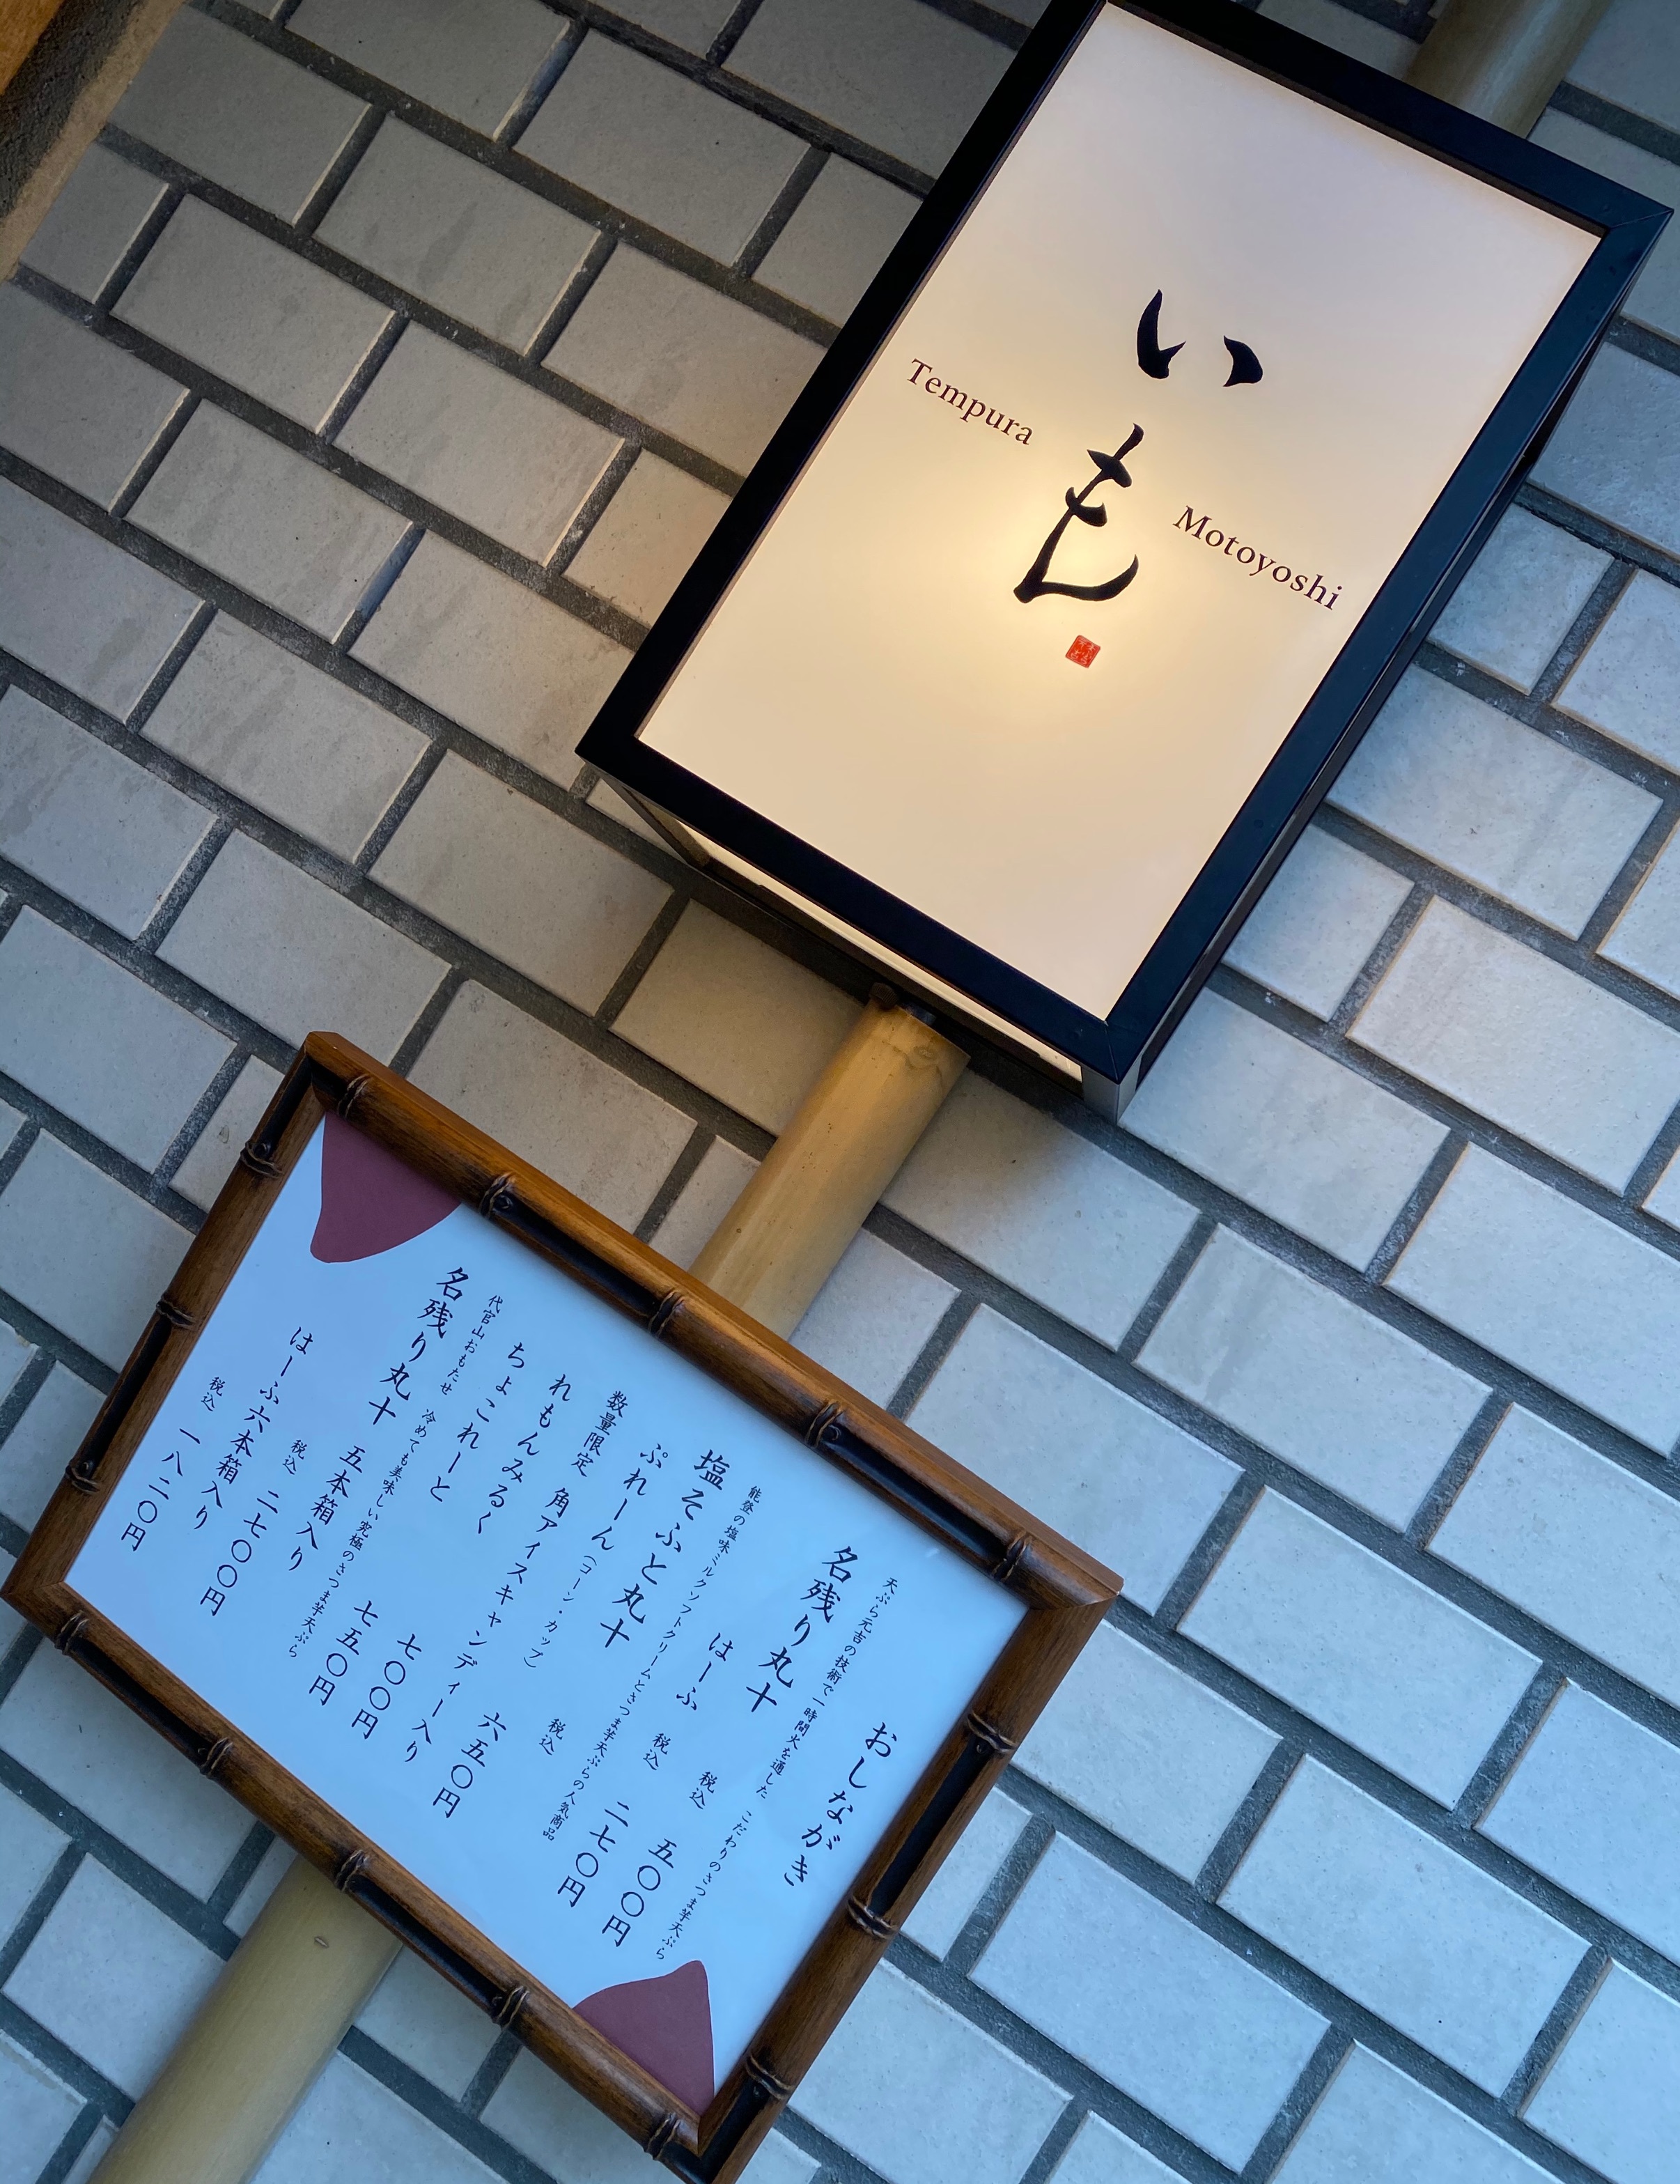 いも
Tempura
Motoyoshi
おしながき
天ぷら元吉の技術で一時間火を通した こだわりのさつま芋天ぷら
名残り丸十 税込 五〇〇円
はーふ 税込 二七〇円
能登の塩味ミルクソフトクリームとさつま芋天ぷらの人気商品
塩そふと丸十
ぷれーん（コーン・カップ） 税込 六五〇円
数量限定 角アイスキャンディー入り
れもんみるく 七〇〇円
ちょこれーと 七五〇円
代官山おもたせ 冷めても美味しい究極のさつま芋天ぷら
名残り丸十 五本箱入り 税込 二七〇〇円
はーふ六本箱入り 税込 一八二〇円